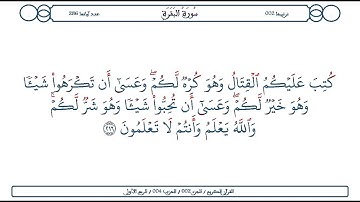 ترتيبها 002 سُورَةُ البَقَرَةِ عدد آياتها 286
كُتِبَ عَلَيْكُمُ ٱلْقِتَالُ وَهُوَ كُرْهٌۭ لَّكُمْ ۖ وَعَسَىٰٓ أَن تَكْرَهُوا۟ شَيْـًۭٔا
وَهُوَ خَيْرٌۭ لَّكُمْ ۖ وَعَسَىٰٓ أَن تُحِبُّوا۟ شَيْـًۭٔا وَهُوَ شَرٌّۭ لَّكُمْ ۗ
وَٱللَّهُ يَعْلَمُ وَأَنتُمْ لَا تَعْلَمُونَ ٢١٦
القرآن الكريم / الجزء 002 / الحزب 004 / الربع الأول